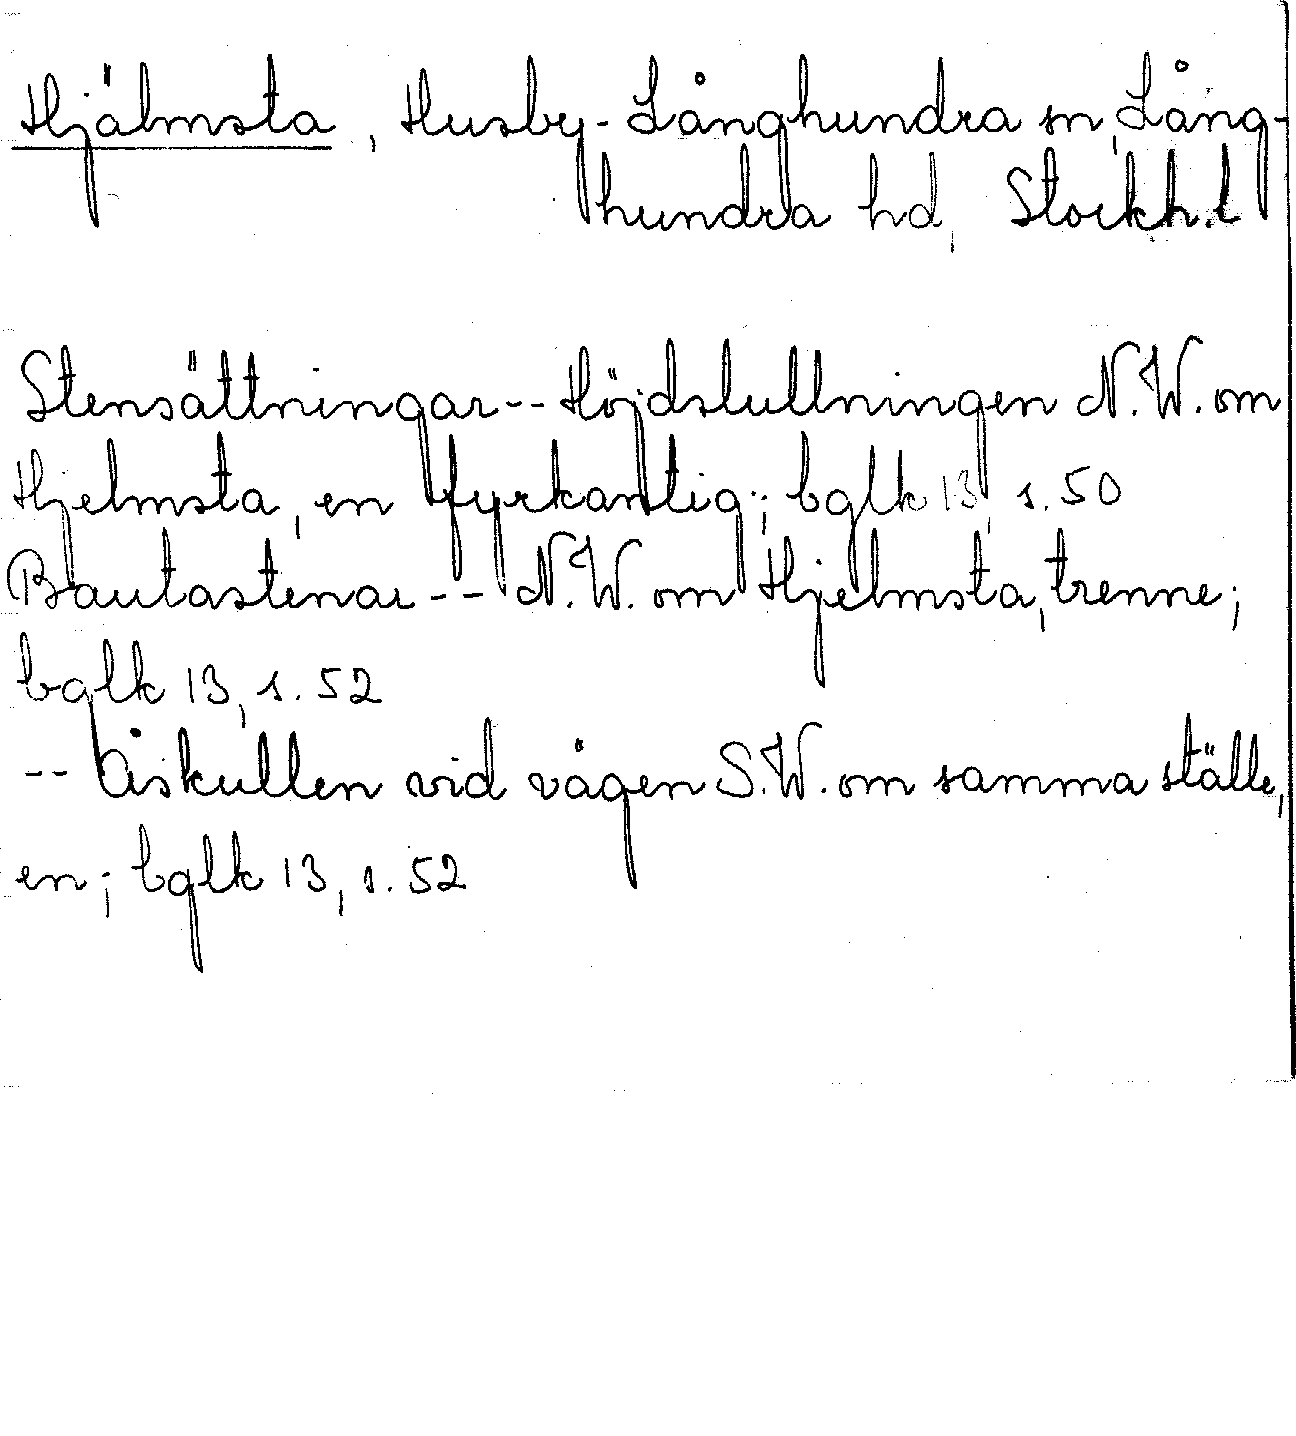 Hjälmsta, Husby-Långhundra sn, Lång-
hundra hd, Stockh.l
Stensättningar -- Höjdsluttningen N.W. om
Hjelmsta, en fyrkantig; bglk 13, s. 50
Bautastenar -- N.W. om Hjelmsta, trenne;
bglk 13, s. 52
-- Åskullen vid vägen S.W. om samma ställe,
en; bglk 13, s. 52